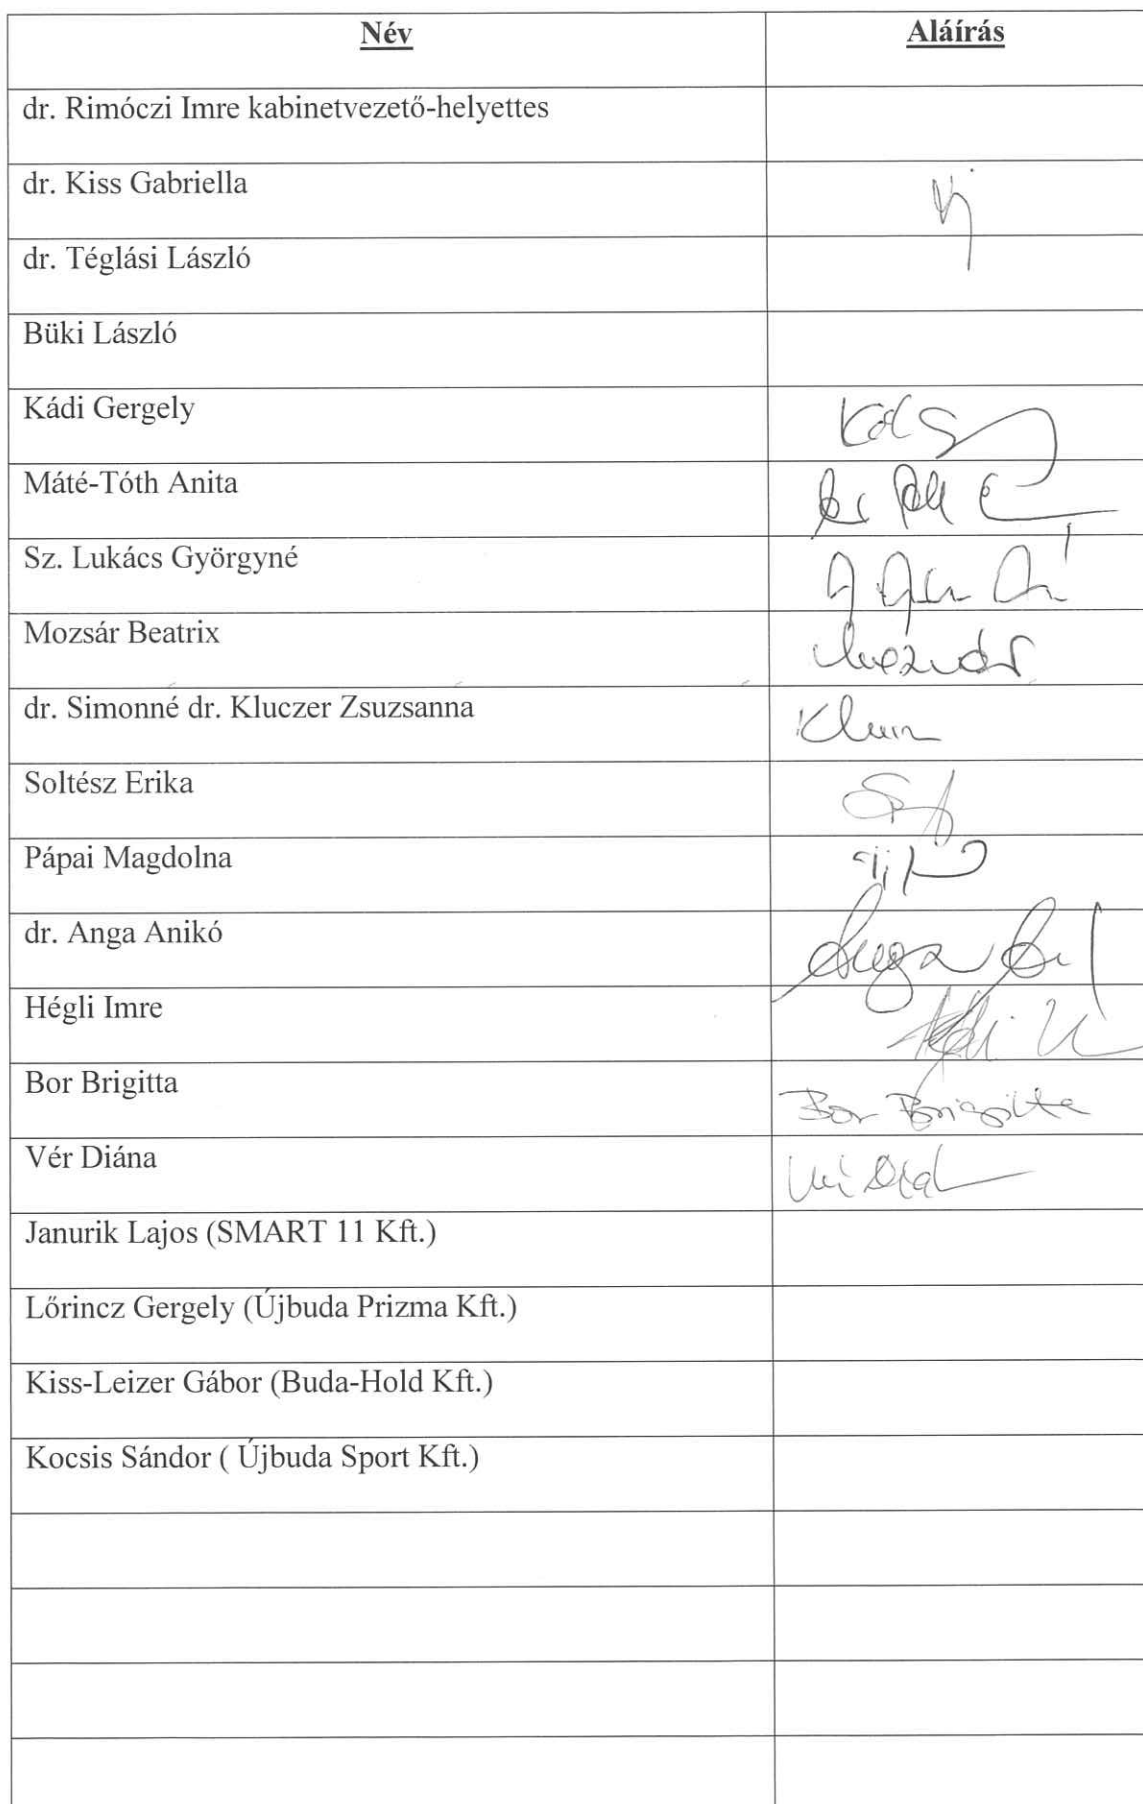 Név Aláírás
dr. Rimóczi Imre kabinetvezető-helyettes
dr. Kiss Gabriella
dr. Téglási László
Büki László
Kádi Gergely
Máté-Tóth Anita
Sz. Lukács Györgyné
Mozsár Beatrix
dr. Simonné dr. Kluczer Zsuzsanna
Soltész Erika
Pápai Magdolna
dr. Anga Anikó
Hégli Imre
Bor Brigitta Bor Brigitta
Vér Diána
Janurik Lajos (SMART 11 Kft.)
Lőrincz Gergely (Újbuda Prizma Kft.)
Kiss-Leizer Gábor (Buda-Hold Kft.)
Kocsis Sándor ( Újbuda Sport Kft.)